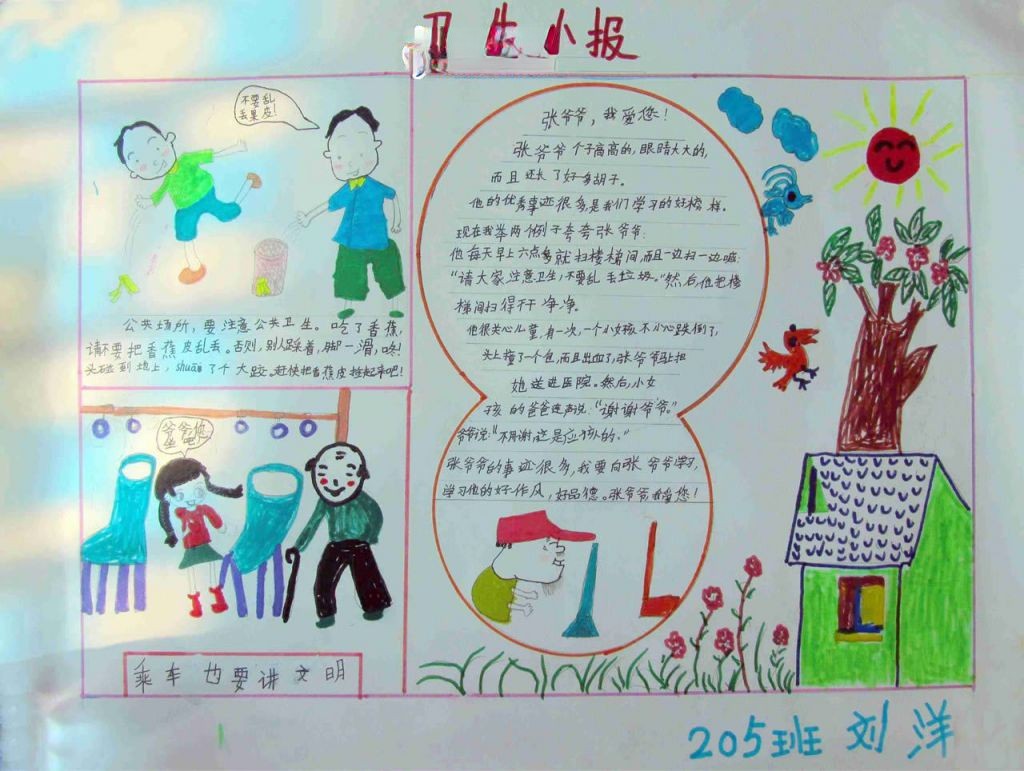 卫生小报
不要乱
丢果皮!
公共场所，要注意公共卫生。吃了香蕉，
请不要把香蕉皮乱丢。否则，别人踩着，脚一滑，咚!
头碰到地上，shuāi了个大跤。赶快把香蕉皮捡起来吧!
爷爷您
坐吧!
乘车也要讲文明
张爷爷，我爱您!
张爷爷个子高高的，眼睛大大的，
而且还长了好多胡子。
他的优秀事迹很多，是我们学习的好榜样。
现在我举两个例子夸夸张爷爷:
他每天早上六点多就扫楼梯间，而且一边扫一边喊:
“请大家注意卫生，不要乱丢垃圾。”然后，他把楼
梯间扫得干干净净。
他很关心儿童，有一次，一个小女孩不小心跌倒了，
头上撞了一个包，而且出血了，张爷爷马上把
她送进医院。然后，小女
孩的爸爸连声说:“谢谢爷爷。”
爷爷说:“不用谢，这是应该的。”
张爷爷的事迹很多，我要向张爷爷学习，
学习他的好作风，好品德。张爷爷，我爱您!
205班 刘洋